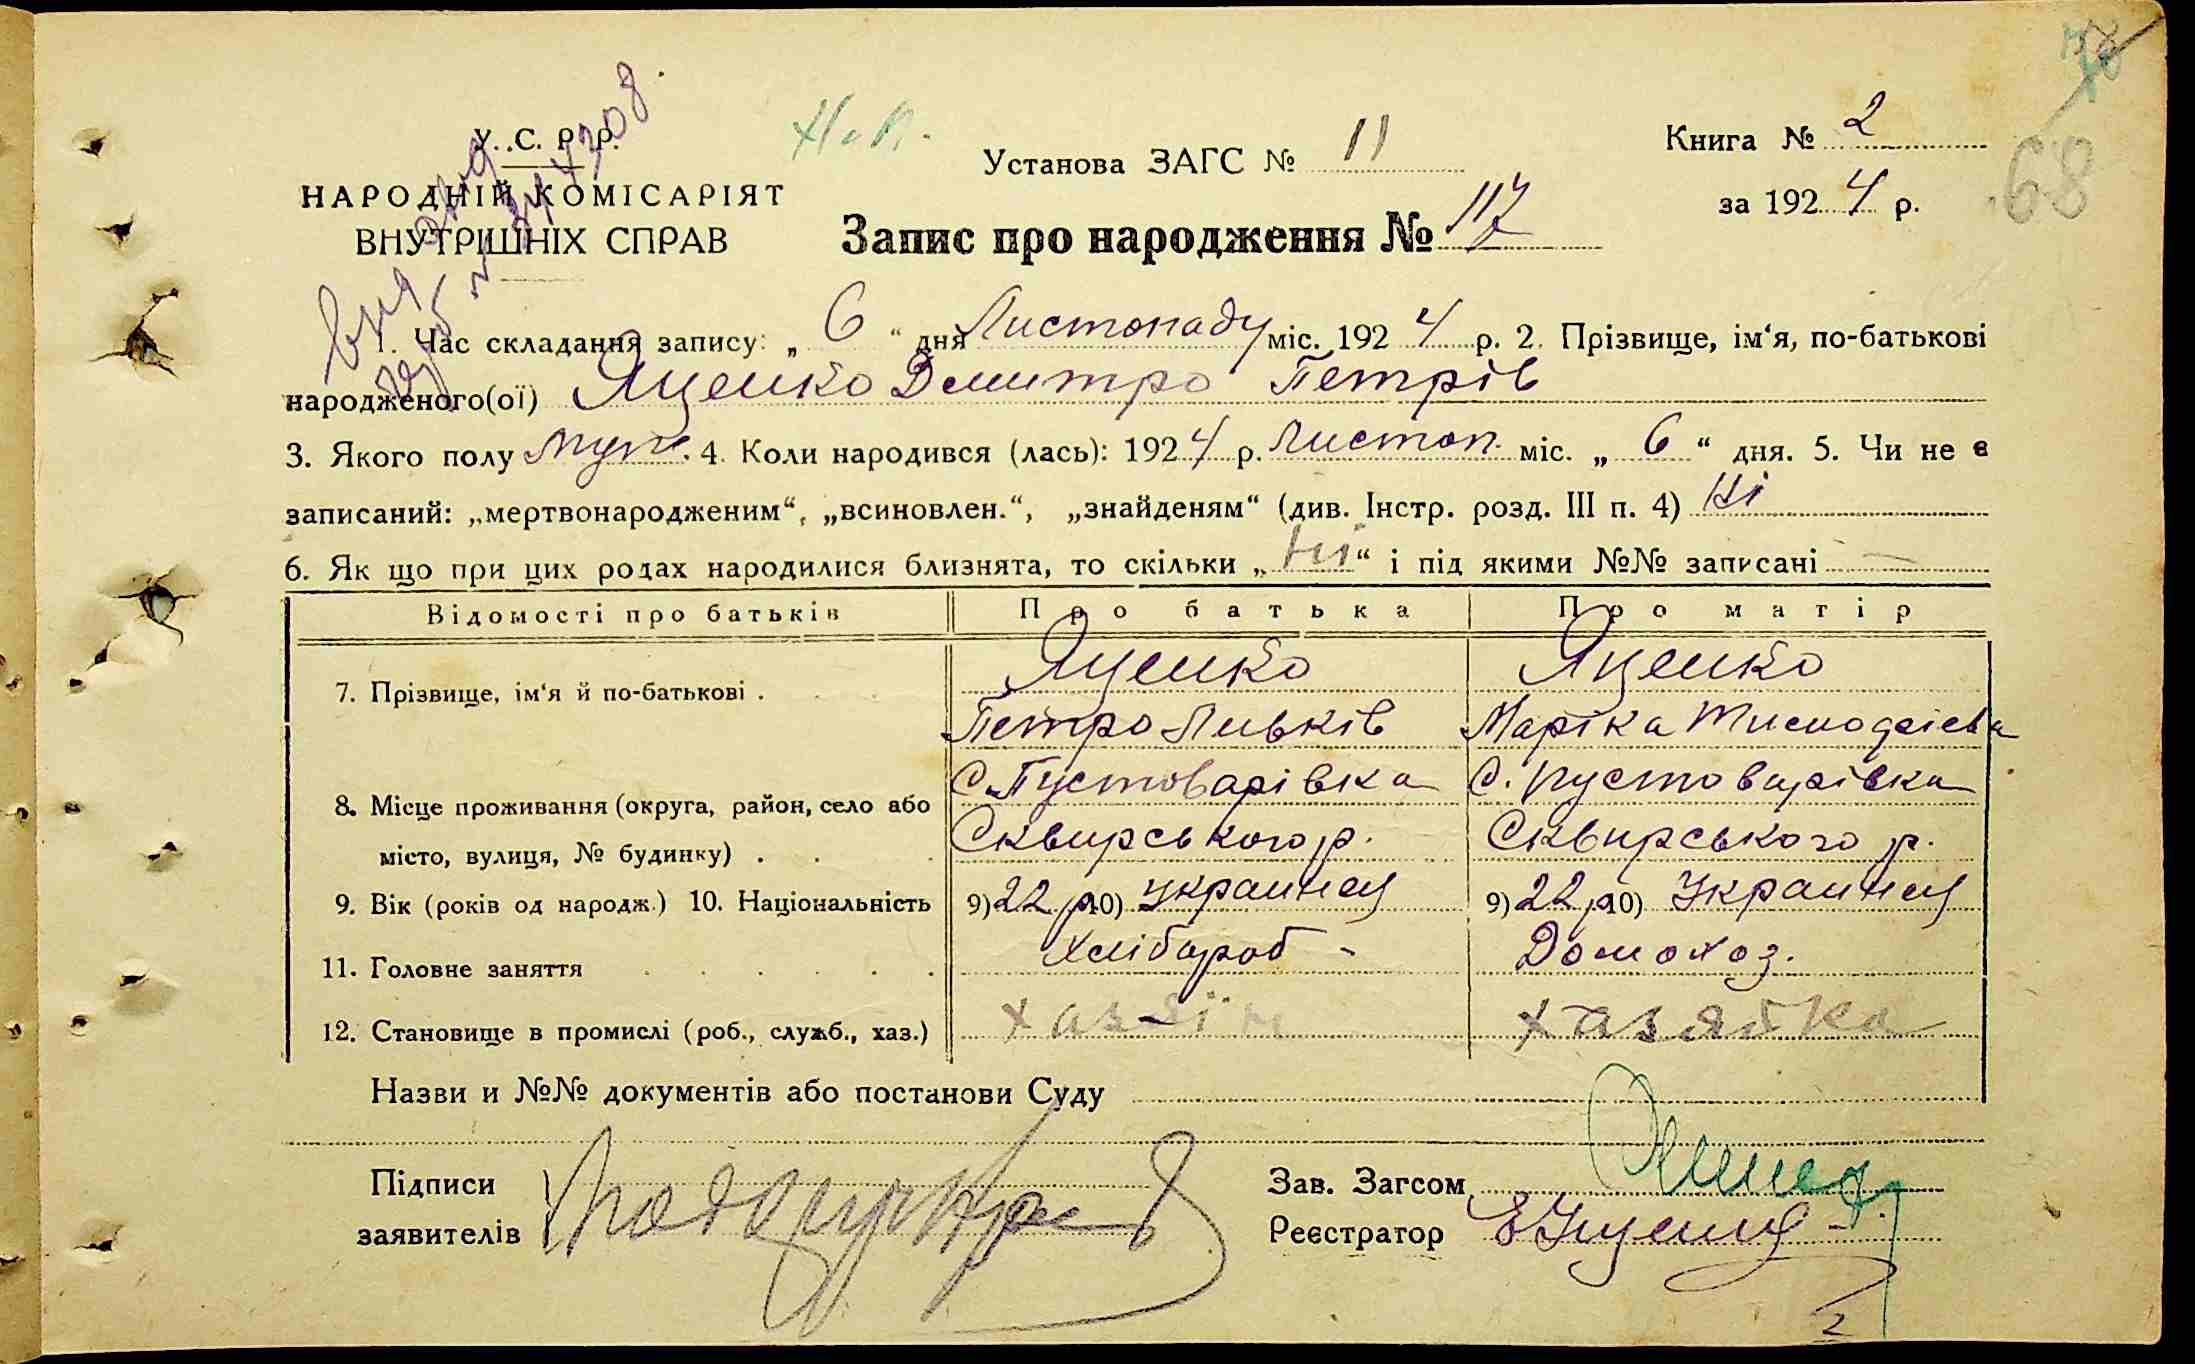 78
68
У. С. Р. Р.
НАРОДНІЙ КОМІСАРІЯТ
ВНУТРІШНІХ СПРАВ
Установа ЗАГС № 11
Книга № 2
за 1924 р.
Запис про народження № 117
1. Час складання запису: „ 6 “ дня Листопаду міс. 1924 р. 2. Прізвище, ім‘я, по-батькові
народженого(ої) Яценко Дмитро Петрів
3. Якого полу муж. 4. Коли народився (лась): 1924 р. Листоп. міс. „ 6 “ дня. 5. Чи не є
записаний: „мертвонародженим“, „всиновлен.“, „знайденям“ (див. Інстр. розд. III п. 4) Ні
6. Як що при цих родах народилися близнята, то скільки „ Ні “ і під якими №№ записані —
Відомості про батьків Про батька Про матір
7. Прізвище, ім‘я й по-батькові . Яценко Яценко
Петро Левків Маріка
С. Пустоварівка С. Пустоварівка
8. Місце проживання (округа, район, село або
місто, вулиця, № будинку) . . Сквирського р. Сквирського р.
9. Вік (років од народж.) 10. Національність 9) 22 р. 10) Украинец 9) 22 р. 10) Украинец
11. Головне заняття Хлібороб - Домохоз.
12. Становище в промислі (роб., служб., хаз.) хазяїн хазяйка
Назви и №№ документів або постанови Суду
Підписи
заявителів
Зав. Загсом
Реєстратор